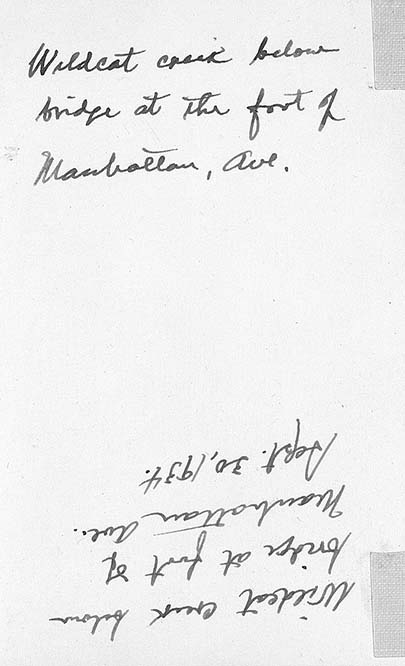 Wildcat creek below
bridge at the foot of
Manhattan, Ave.
Wildcat Creek below
bridge at foot of
Manhattan Ave.
Sept. 30, 1934.